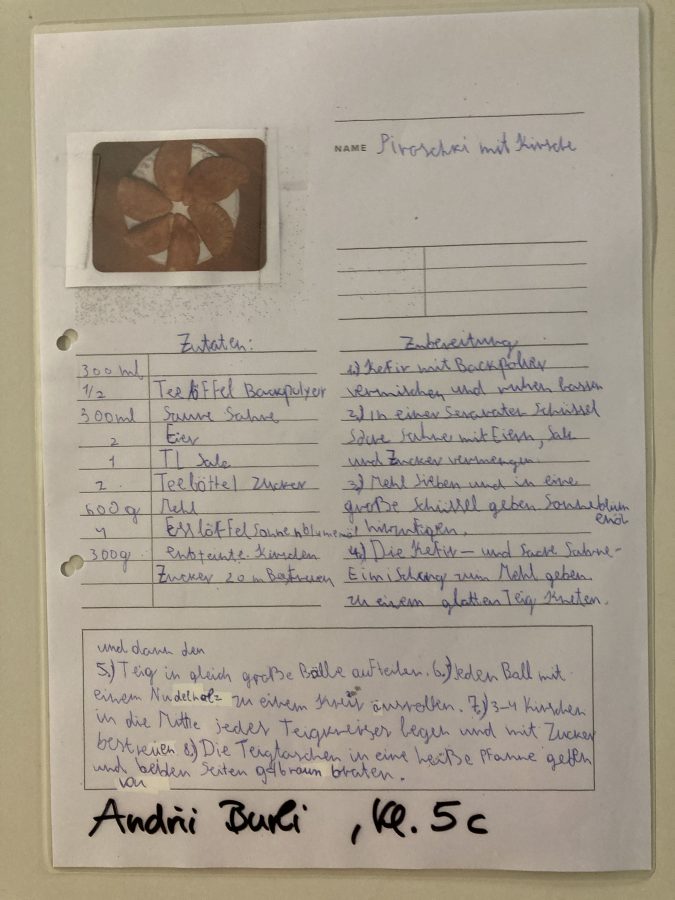 NAME Piroschki mit Kirsche
Zutaten:
300 ml
1/2 Teelöffel Backpulver
300ml Saure Sahne
2 Eier
1 TL Salz
2. Teelöffel Zucker
600 g Mehl
4 Esslöffel Sonnenblumenöl
300g. entsteinte Kirschen
Zucker zom Bestreuen
Zubereitung
1.) Kefir mit Backpolver
vermischen und ruhen lassen
2.) In einer Seraraten Schüssel
Saure Sahne mit Eiern, Salz
und Zucker vermengen.
3.) Mehl Sieben und in eine
große Schüssel geben Sonneblum
enöl
hinzufügen.
4.) Die Kefir- und Saure Sahne-
Eimischang zum Mehl geben
zu einem glatten Teig Kneten.
und dann den
5.) Teig in gleich große Bälle aufteilen. 6.) Jeden Ball mit
einem Nudelholz zu einem Kreis ausrollen. 7.) 3-4 Kirschen
in die Mitte jedes Teigkreises legen und mit Zucker
bestreuen 8.) Die Teigtaschen in eine heiße Pfanne geben
und beiden Seiten golbraun braten.
von
Andrii Burli, Kl. 5c